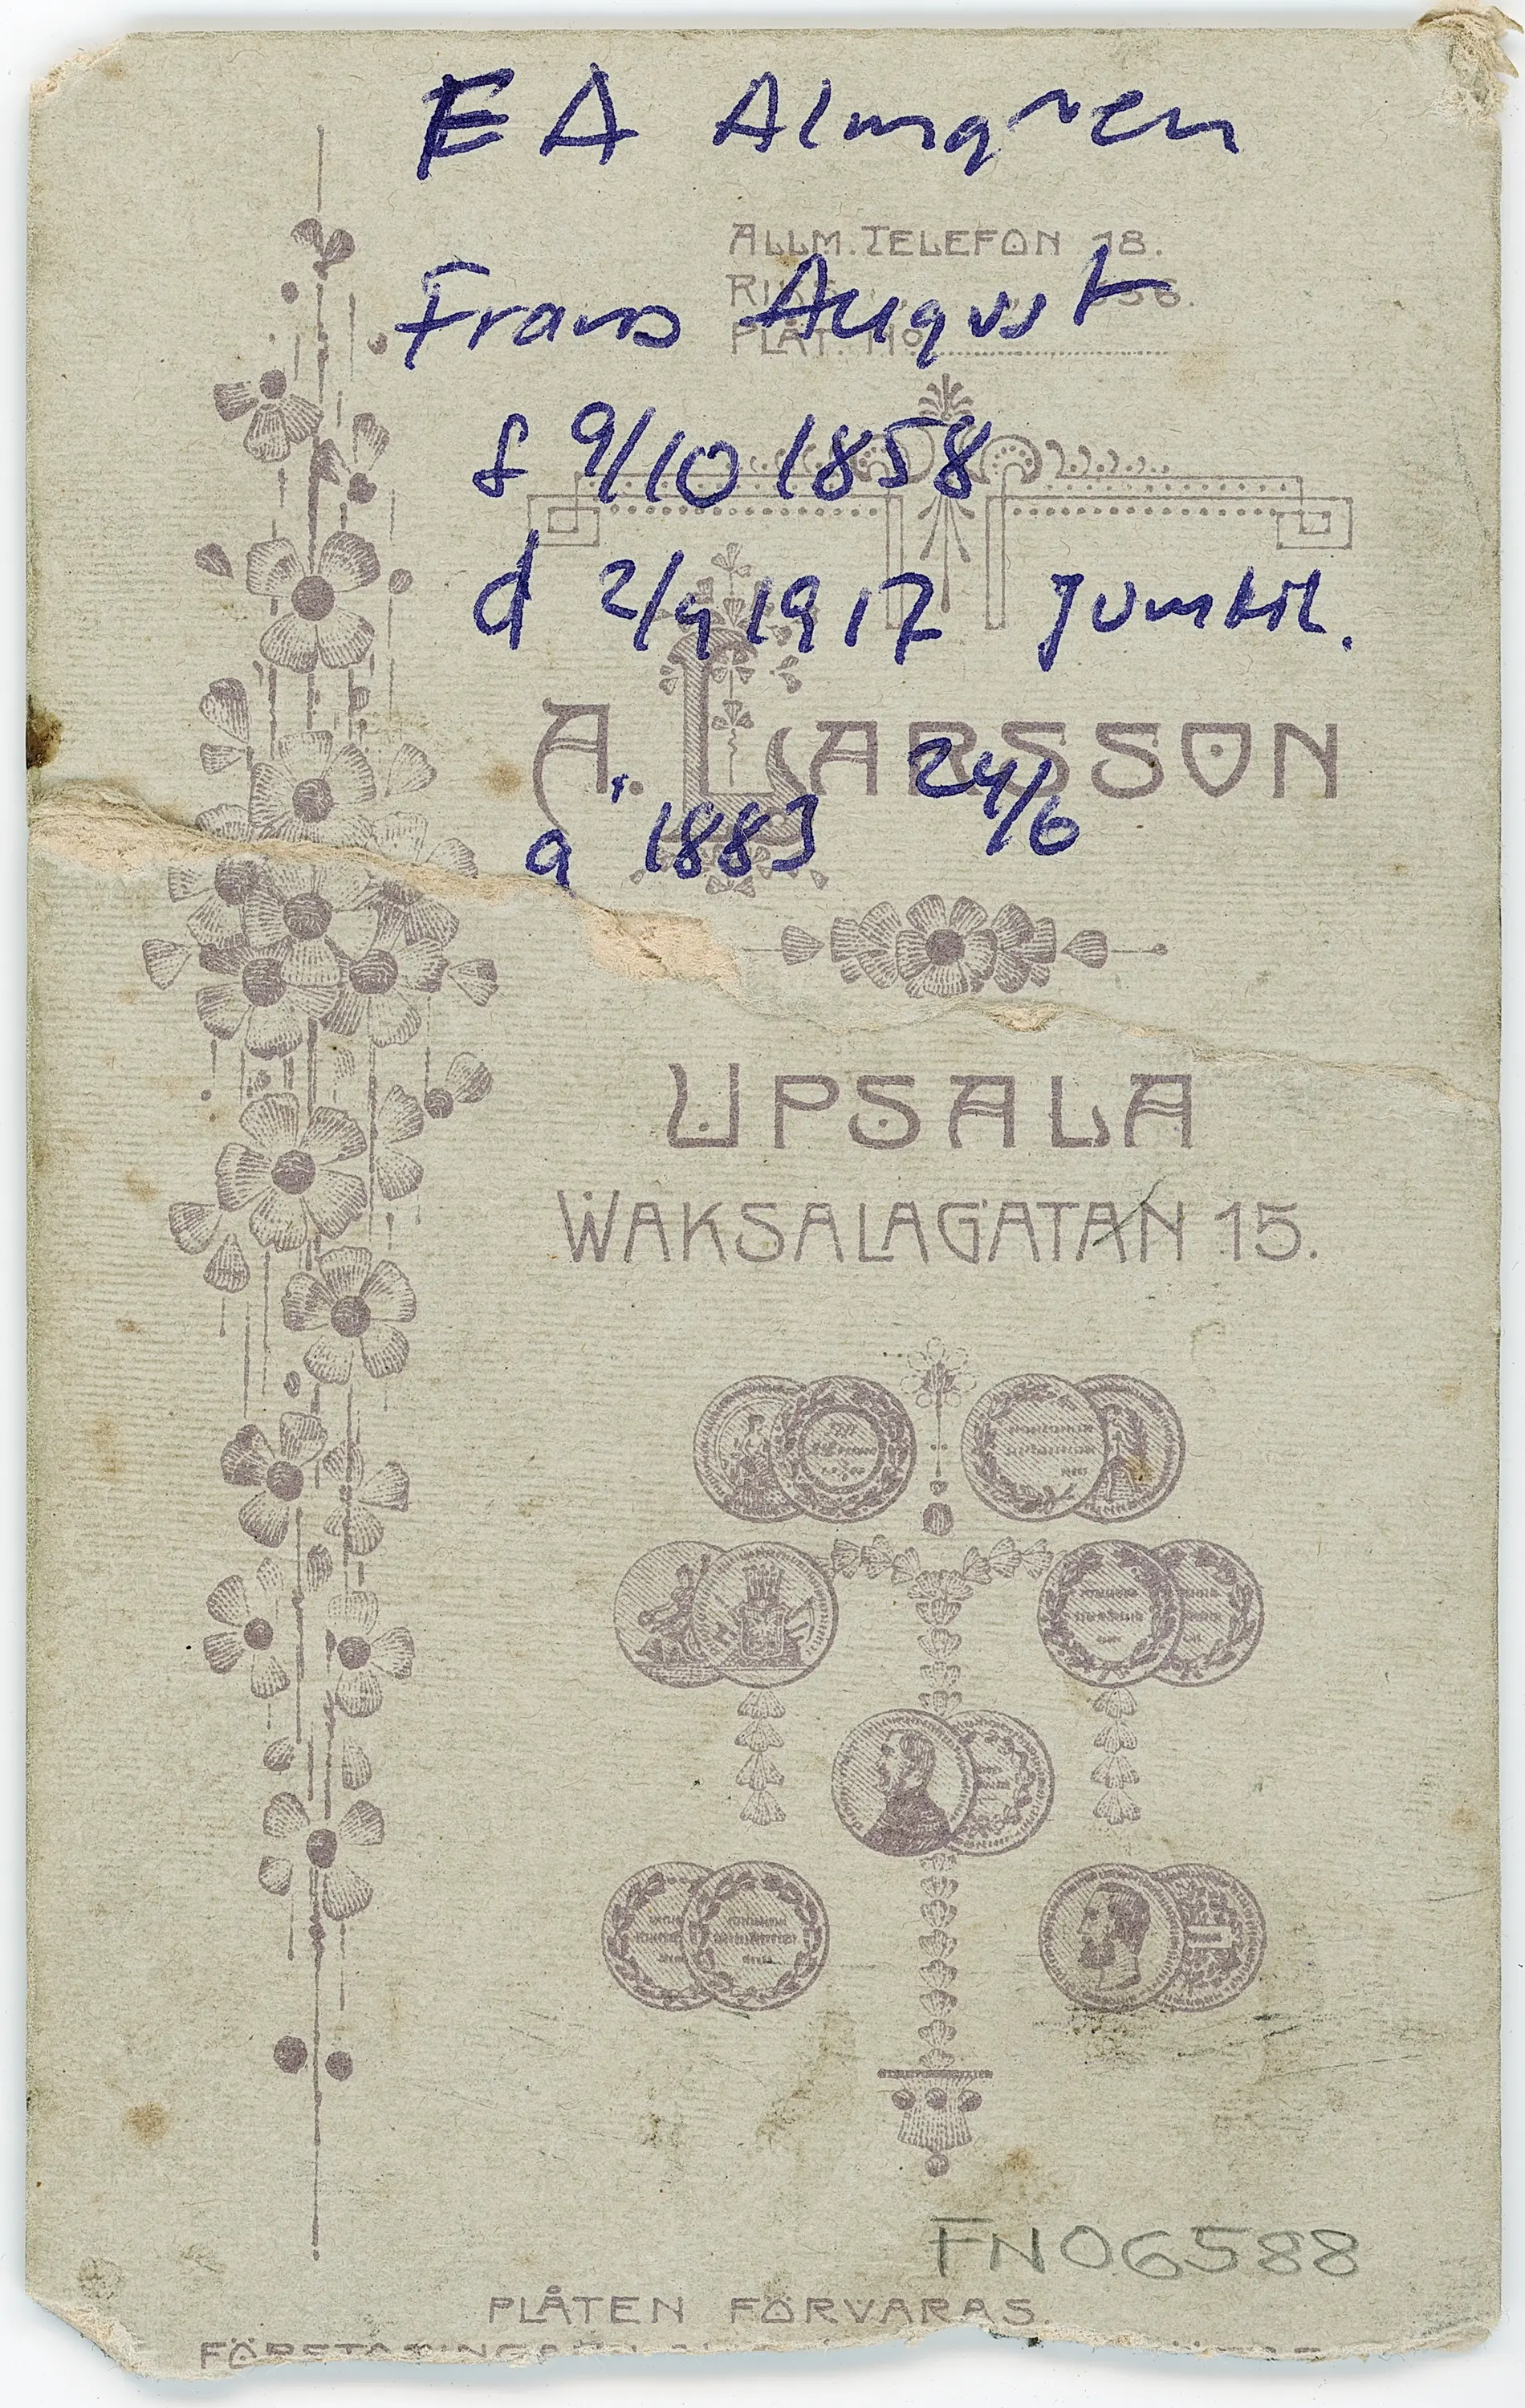 EA Almgren
ALLM. TELEFON 18.
RIKS " " 56.
Frans August
PLÅT. No
f 9/10 1858
d 2/9 1917 Jumkil.
A. LARSSON
24/6
a 1883
UPSALA
WAKSALAGATAN 15.
FN06588
PLÅTEN FÖRVARAS.